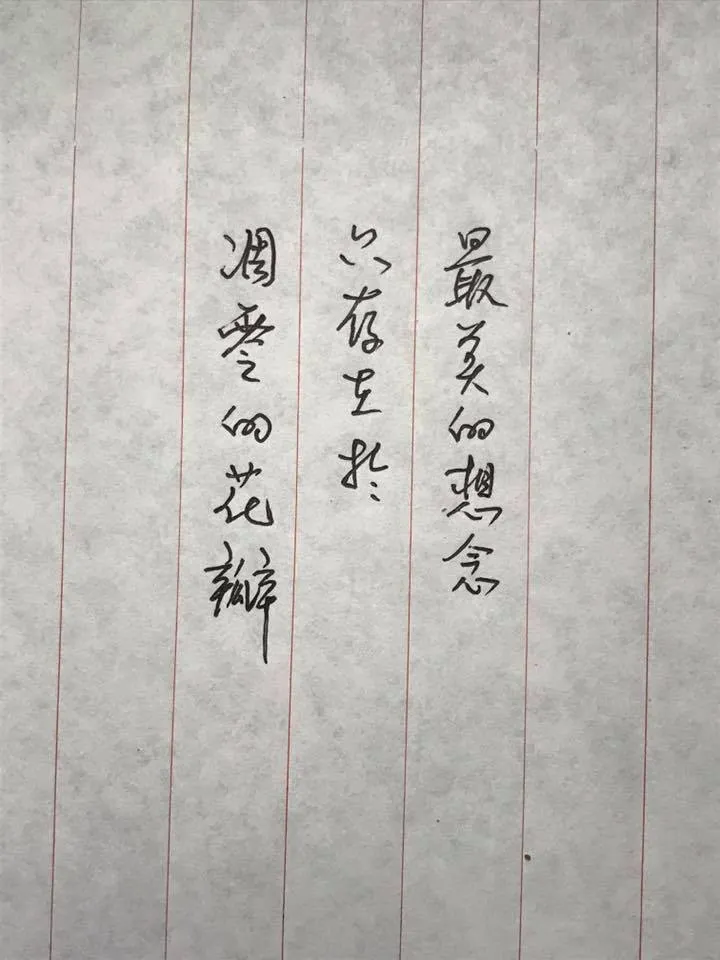 最美的想念
只存在於
凋零的花瓣